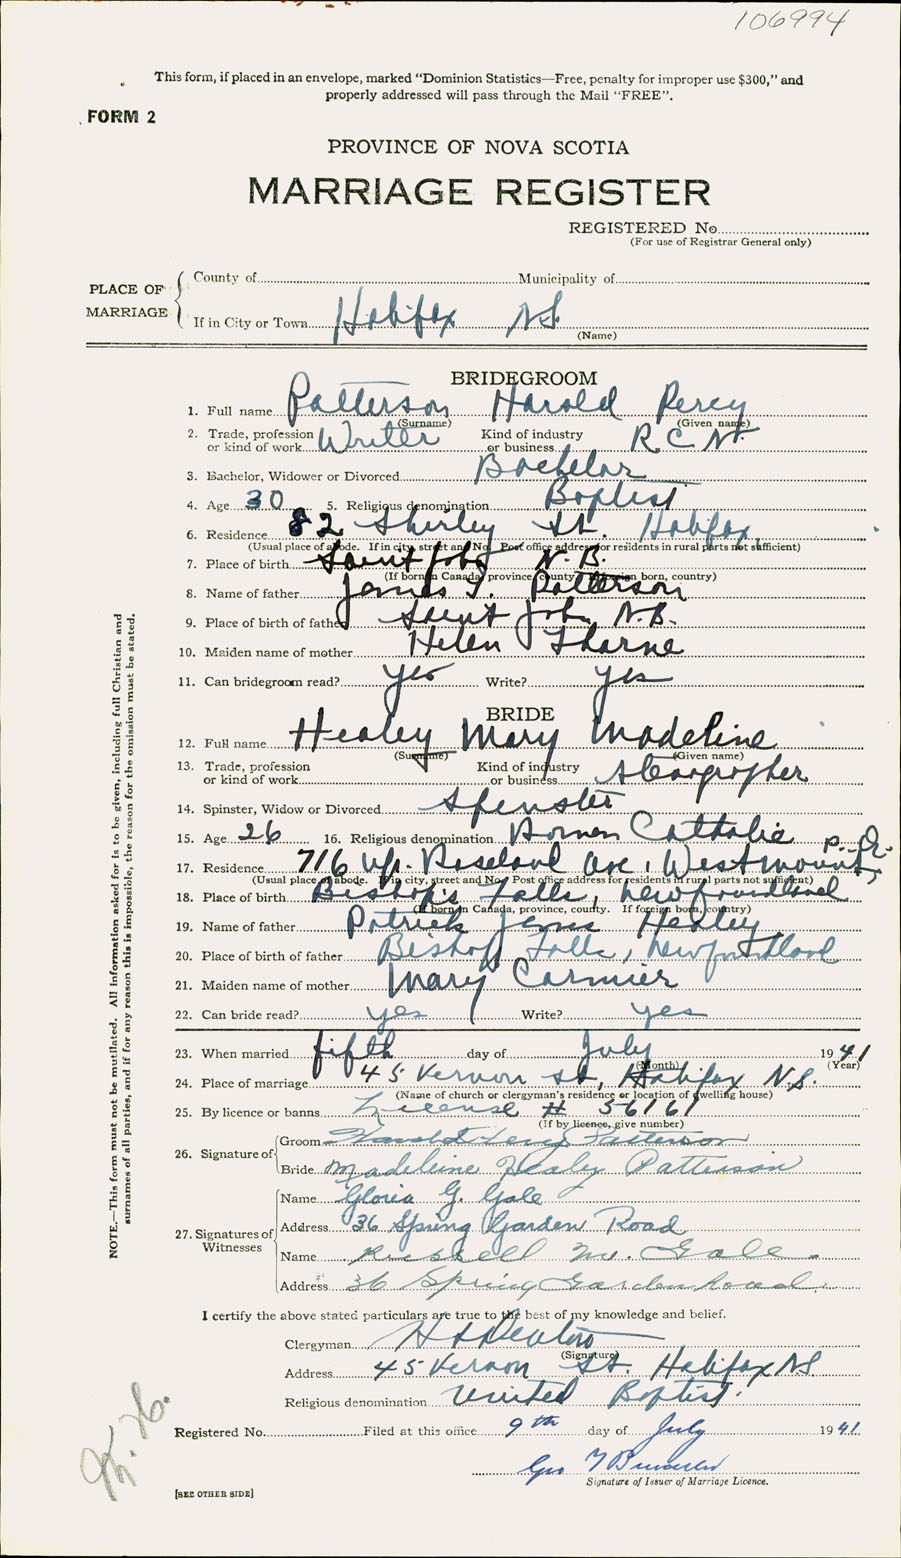 106994
This form, if placed in an envelope, marked "Dominion Statistics—Free, penalty for improper use $300," and
properly addressed will pass through the Mail "FREE".
FORM 2
PROVINCE OF NOVA SCOTIA
MARRIAGE REGISTER
REGISTERED No
(For use of Registrar General only)
PLACE OF MARRIAGE
County of Municipality of
If in City or Town Halifax N.S.
(Name)
BRIDEGROOM
1. Full name Patterson Harold Percy
(Surname) (Given name)
2. Trade, profession or kind of work Writer Kind of industry or business R.C.N.
3. Bachelor, Widower or Divorced Bachelor
4. Age 30 5. Religious denomination Baptist
6. Residence 82 Shirley St. Halifax
(Usual place of abode. If in city, street and No. Post office address for residents in rural parts not sufficient)
7. Place of birth Saint John N.B.
(If born in Canada, province, county. If foreign born, country)
8. Name of father James T. Patterson
9. Place of birth of father Saint John N.B.
10. Maiden name of mother Helen Thorne
11. Can bridegroom read? yes Write? yes
BRIDE
12. Full name Healey Mary Madeline
(Surname) (Given name)
13. Trade, profession or kind of work Kind of industry or business Stenographer
14. Spinster, Widow or Divorced Spenster
15. Age 26 16. Religious denomination Roman Catholic
17. Residence 716 Up. Roseland Ave, Westmount, P.Q.
(Usual place of abode. If in city, street and No. Post office address for residents in rural parts not sufficient)
18. Place of birth Bishop's Falls, Newfoundland
(If born in Canada, province, county. If foreign born, country)
19. Name of father Patrick James Healey
20. Place of birth of father Bishop Falls, Newfoundland
21. Maiden name of mother Mary Cormier
22. Can bride read? yes Write? yes
23. When married fifth day of July 1941
(Month) (Year)
24. Place of marriage 45 Vernon St, Halifax N.S.
(Name of church or clergyman's residence or location of dwelling house)
25. By licence or banns License # 56161
(If by licence, give number)
26. Signature of
Groom Harold Percy Patterson
Bride Madeleine Healey Patterson
27. Signatures of Witnesses
Name Gloria G. Gale
Address 36 Spring Garden Road
Name Russell M. Gale.
Address 36 Spring Garden Road.
I certify the above stated particulars are true to the best of my knowledge and belief.
Clergyman
(Signature)
Address 45 Vernon St. Halifax N.S.
Religious denomination United Baptist.
Registered No. Filed at this office 9th day of July 1941
Geo
Signature of Issuer of Marriage Licence.
[SEE OTHER SIDE]
NOTE.—This form must not be mutilated. All information asked for is to be given, including full Christian and
surnames of all parties, and if for any reason this is impossible, the reason for the omission must be stated.